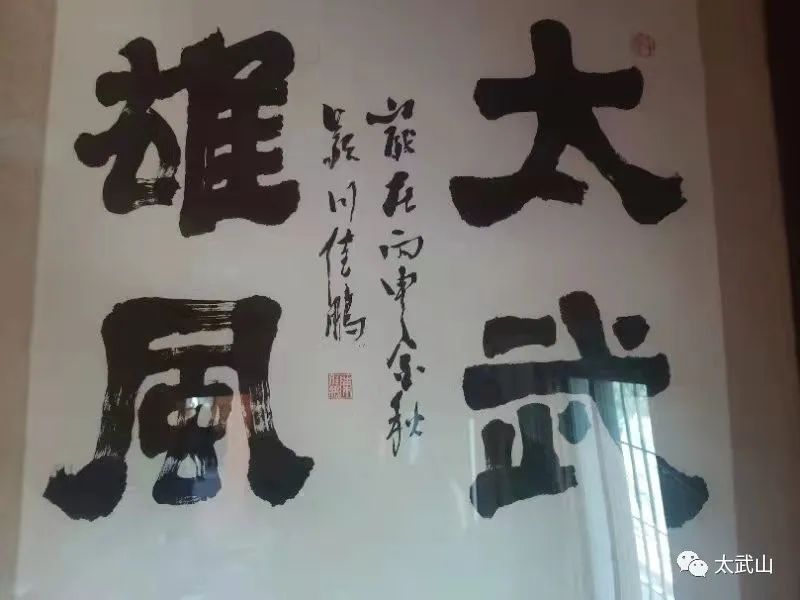 太武
雄風
歲在丙申金秋
颍川佳鵬
太武山